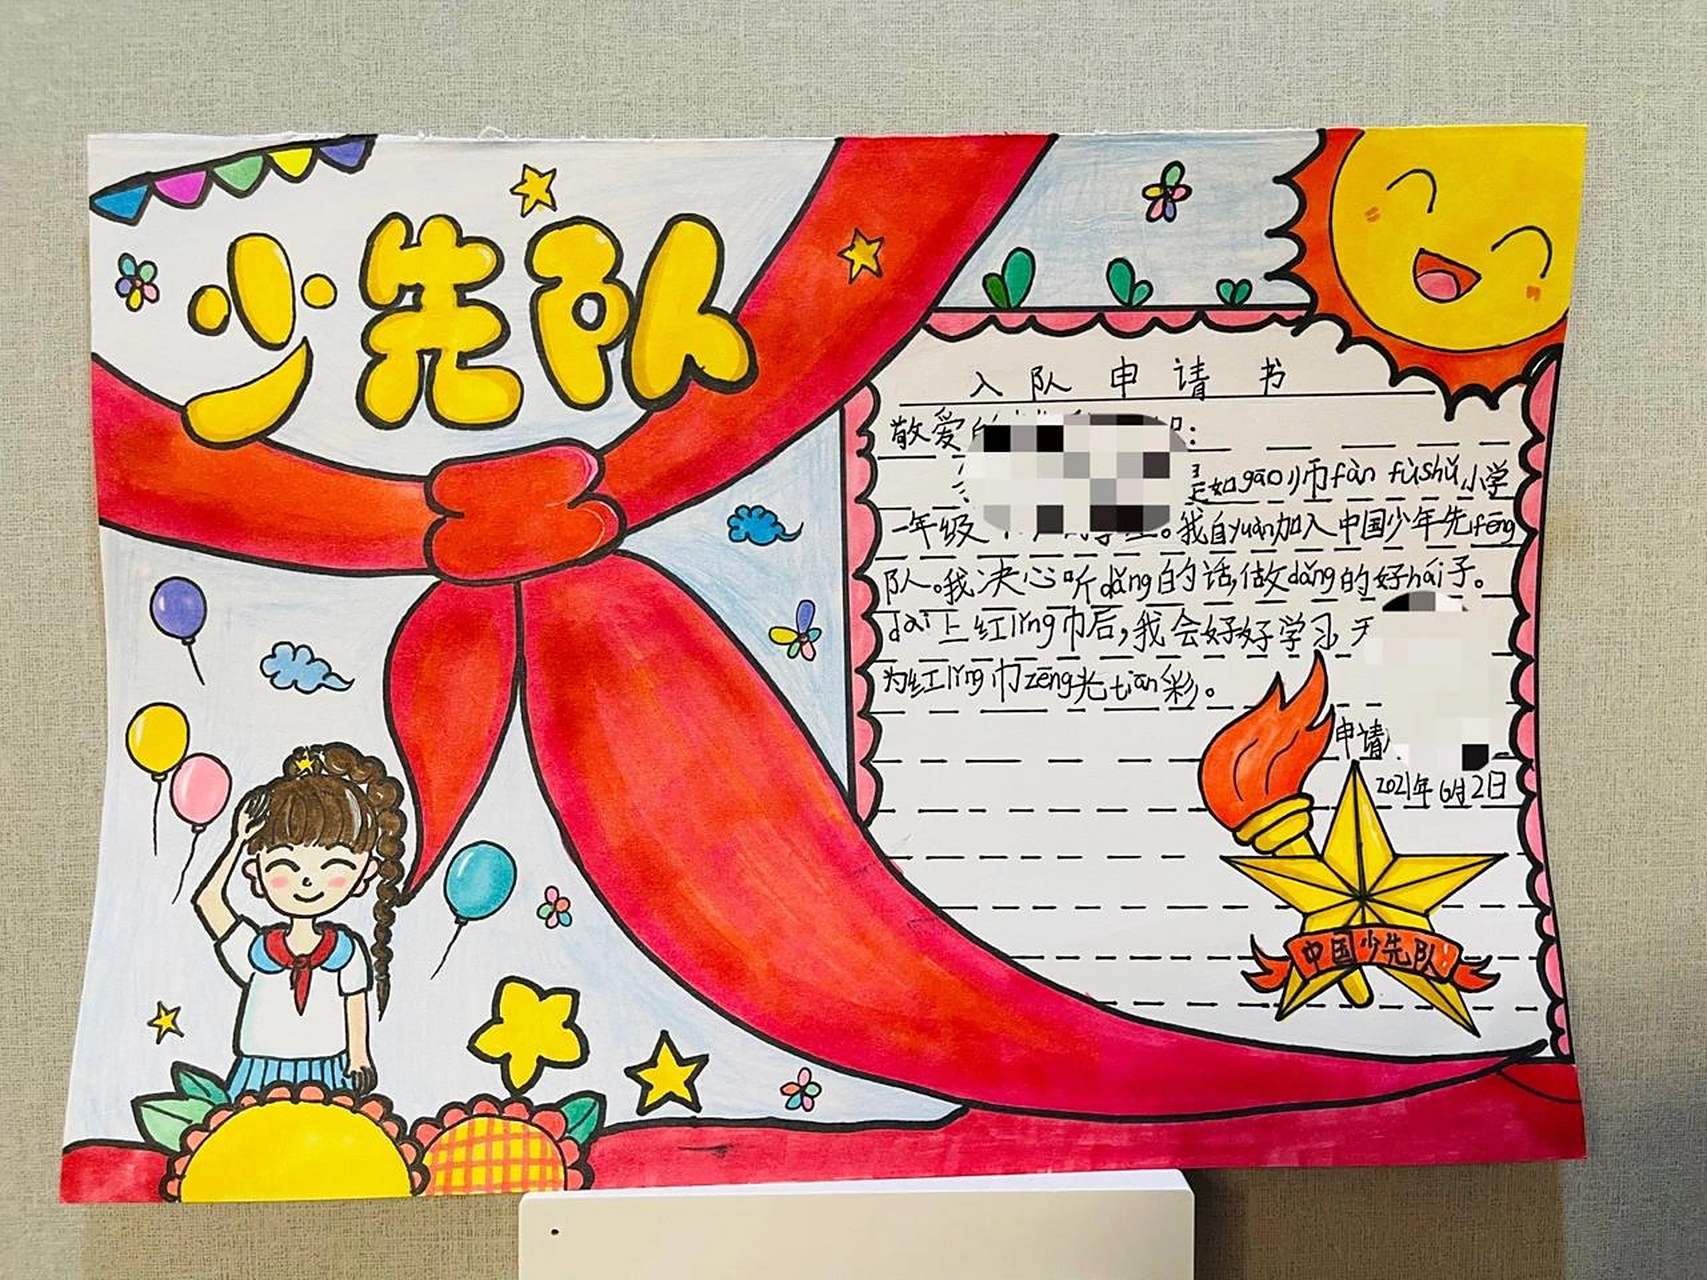 少先队
入队申请书
敬爱的
是如gāo师fàn fùshǔ小学
一年级 。我自yuàn加入中国少年先fēng
队。我决心听dǎng的话,做dǎng的好hái子。
dài上红lǐng巾后,我会好好学习,
为红lǐng巾zēng光tiān彩。
申请
2021年6月2日
中国少先队